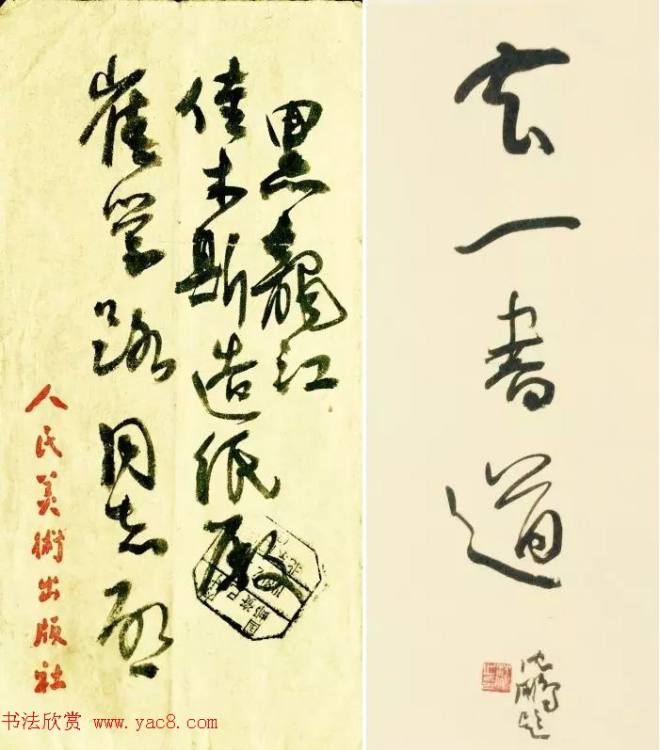 黑龍江
佳木斯造纸廠
崔学路同志啟
人民美術出版社
玄一書道
沈鹏题
书法欣赏 www.yac8.com